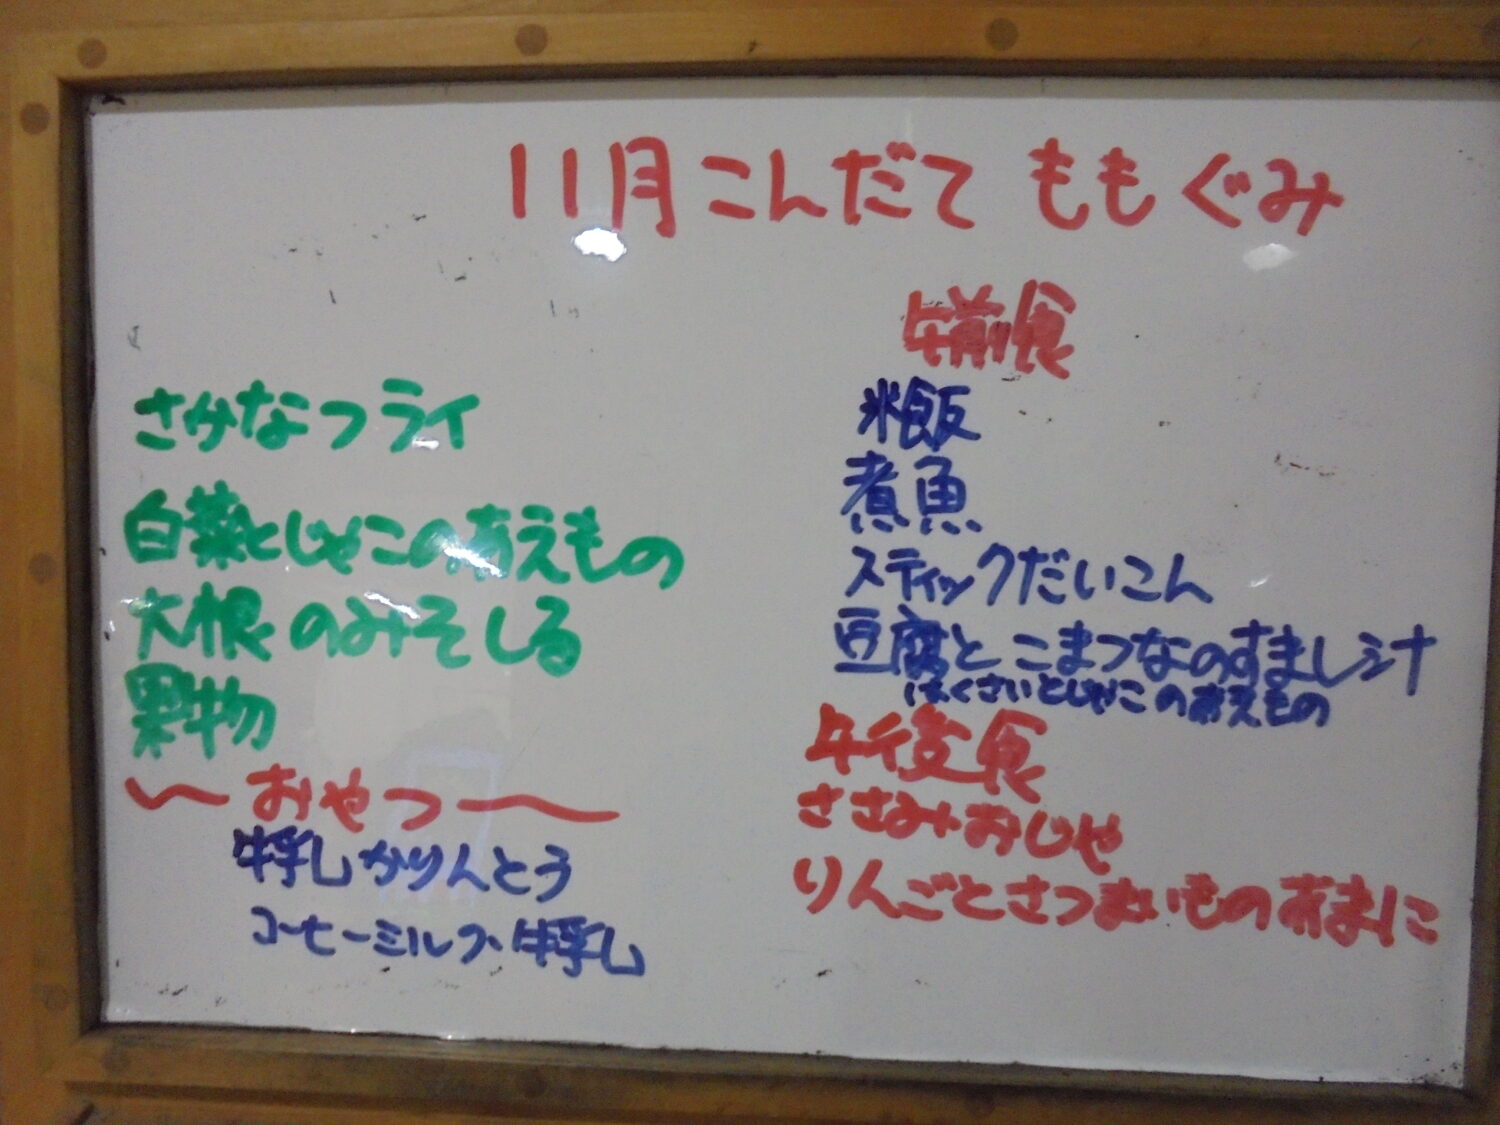 11月こんだて ももぐみ
さかなフライ
白菜とじゃこのあえもの
大根のみそしる
果物
おやつ
牛乳 かりんとう
コーヒーミルク・牛乳
午前食
米飯
煮魚
スティックだいこん
豆腐とこまつなのすまし汁
はくさいとじゃこのあえもの
午後食
ささみおじや
りんごとさつまいものあまに